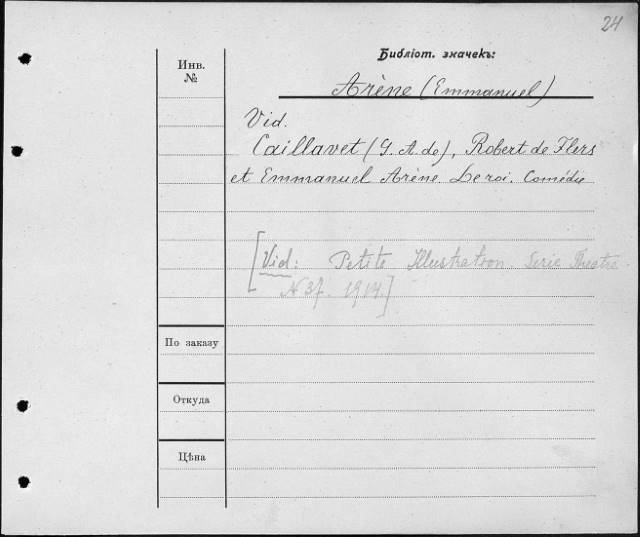 24
Библіот. значекъ:
Инв.
№
Arène (Emmanuel)
Vid.
Caillavet (G. A. de), Robert de Flers
et Emmanuel Arène. Le roi. Comédie
[Vid: Petite Illustration. Serie Theatre.
N 37. 1914.]
По заказу
Откуда
Цѣна